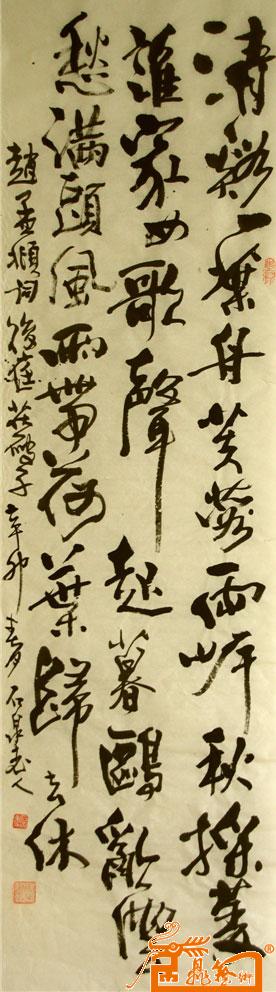 清谿一葉舟芙蓉兩岸秋採菱
誰家女歌聲起暮鷗亂雲
愁滿頭風雨帶荷葉歸去休
趙孟頫詞後庭花破子辛卯春月石泉老人